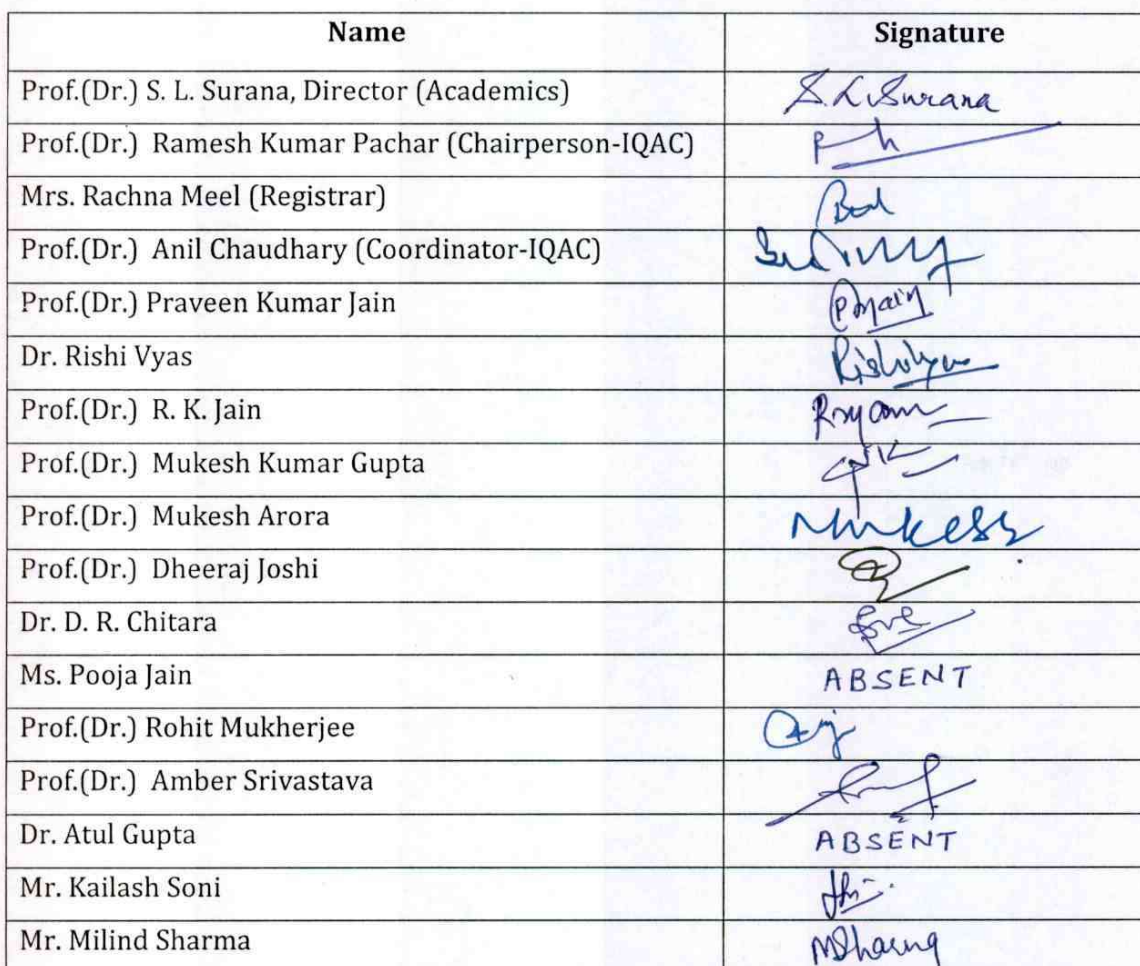 Name Signature
Prof.(Dr.) S. L. Surana, Director (Academics) S.L.Surana
Prof.(Dr.) Ramesh Kumar Pachar (Chairperson-IQAC)
Mrs. Rachna Meel (Registrar)
Prof.(Dr.) Anil Chaudhary (Coordinator-IQAC)
Prof.(Dr.) Praveen Kumar Jain PJain
Dr. Rishi Vyas
Prof.(Dr.) R. K. Jain
Prof.(Dr.) Mukesh Kumar Gupta
Prof.(Dr.) Mukesh Arora
Prof.(Dr.) Dheeraj Joshi
Dr. D. R. Chitara
Ms. Pooja Jain ABSENT
Prof.(Dr.) Rohit Mukherjee
Prof.(Dr.) Amber Srivastava
Dr. Atul Gupta ABSENT
Mr. Kailash Soni
Mr. Milind Sharma MSharma